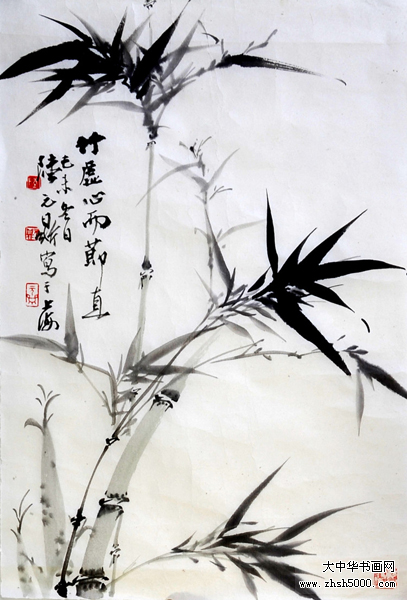 竹虛心而節直
己未冬日
陸元鼎寫于上海
大中华书画网
www.zhsh5000.com